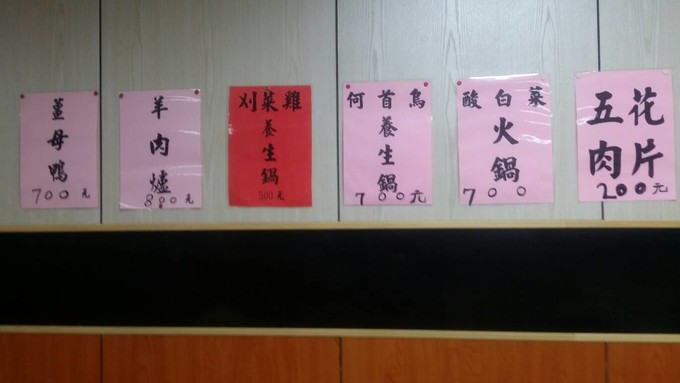 薑母鴨
700元
羊肉爐
800元
刈菜雞
養生鍋
500元
何首烏
養生鍋
700元
酸白菜
火鍋
700
五花
肉片
200元